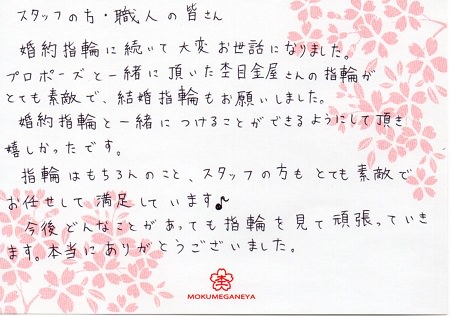 スタッフの方・職人の皆さん
婚約指輪に続いて大変お世話になりました。
プロポーズと一緒に頂いた杢目金屋さんの指輪が
とても素敵で、結婚指輪もお願いしました。
婚約指輪と一緒につけることができるようにして頂き
嬉しかったです。
指輪はもちろんのこと、スタッフの方もとても素敵で
お任せして満足しています♪
今後どんなことがあっても指輪を見て頑張っていき
ます。本当にありがとうございました。
杢
MOKUMEGANEYA